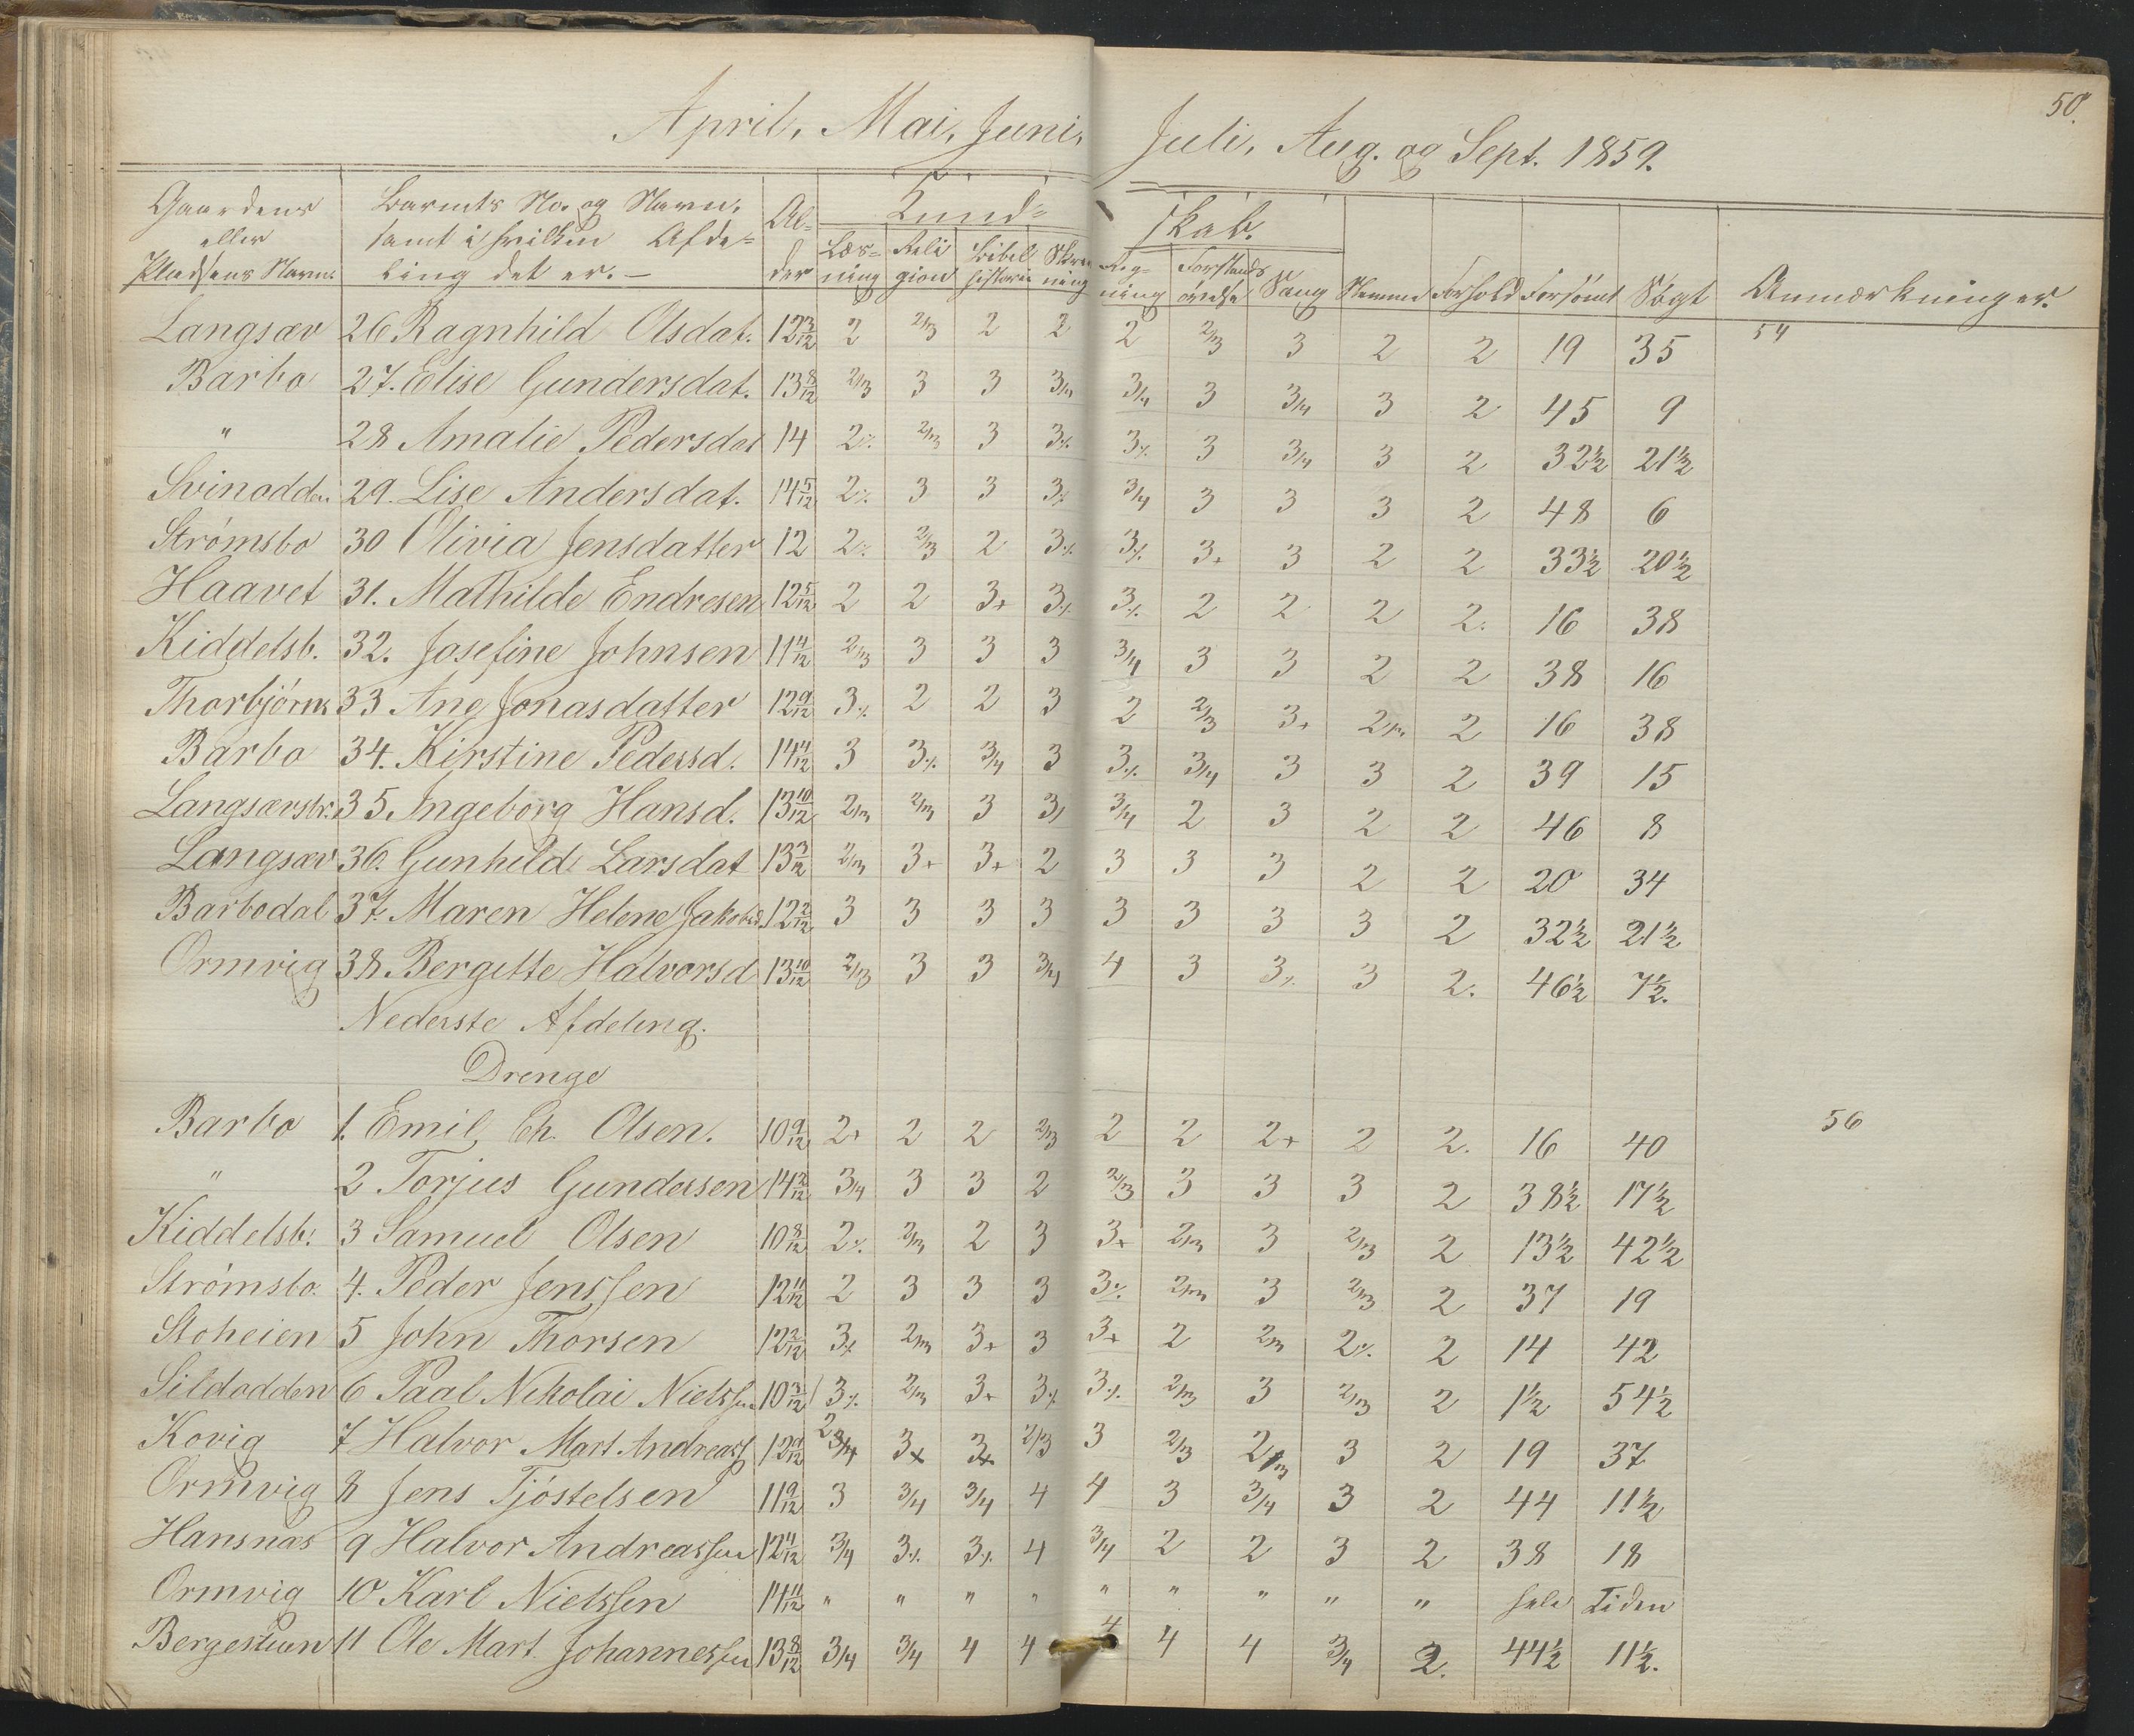 50.
April, Mai, Juni, Juli, Aug. og Sept. 1859.
Gaardens eller Pladsens Navn. Barnets No. og Navn, samt i hvilken Afdeling det er. — Alder Kundskab. Nemme Forhold Forsömt Søgt Anmærkninger.
Læsning Religion Bibelhistorie Skrivning Regning Forstandsövelse Sang
Langsæv 26 Ragnhild Olsdat. 12 3/12 2 2/3 2 2 2 2/3 3 2 2 19 35 54
Barbo 27. Elise Gundersdat. 13 8/12 2/3 3 3 3/4 3/4 3 3/4 3 2 45 9
" 28 Amalie Pedersdat 14 2% 2/3 3 3% 3% 3 3/4 3 2 32½ 21½
Svinodden 29. Lise Andersdat. 14 5/12 2% 3 3 3% 3/4 3 3 3 2 48 6
Strømsbo 30 Olivia Jensdatter 12 2% 2/3 2 3% 3% 3+ 3 2 2 33½ 20½
Haavet 31. Mathilde Endresen 12 5/12 2 2 3+ 3% 3% 2 2 2 2. 16 38
Kiddelsb. 32. Josefine Johnsen 11 11/12 2/3 3 3 3 3/4 3 3 2 2 38 16
Thorbjörns 33 Ane Jonasdatter 12 9/12 3% 2 2 3 2 2/3 3+ 2/3 2 16 38
Barbo 34. Kirstine Pedersd. 14 4/12 3 3% 3/4 3 3% 3/4 3 3 2 39 15
Langsævstr. 35. Ingeborg Hansd. 13 10/12 2/3 2/3 3 3/ 3/4 2 3 2 2 46 8
Langsæv 36. Gunhild Larsdat 13 3/12 2/3 3+ 3+ 2 3 3 3 2 2 20 34
Barbodal 37. Maren Helene Jakobsd. 12 2/12 3 3 3 3 3 3 3 3 2 32½ 21½
Ormvig 38. Bergitte Halvorsd 13 10/12 2/3 3 3 3/4 4 3 3% 3 2. 46½ 7½.
Nederste Afdeling.
Drenge
Barbo 1. Emil Ch. Olsen. 10 9/12 2+ 2 2 2/3 2 2 2+ 2 2. 16 40 56
" 2 Torjus Gundersen 14 2/12 3/4 3 3 2 2/3 3 3 3 2 38½ 17½
Kiddelsb. 3 Samuel Olsen 10 8/12 2% 2/3 2 3 3+ 2/3 3 2/3 2 13½ 42½
Strømsbo. 4. Peder Jenssen 12 11/12 2 3 3 3 3% 2/3 3 2/3 2 37 19
Stoheien 5 John Thorsen 12 2/12 3% 2/3 3+ 3 3+ 2 2/3 2% 2 14 42
Sildodden 6 Paal Nikolai Nielssen 10 3/12 3% 2/3 3+ 3% 3% 2/3 3 2/3 2 1½ 54½
Kovig 7 Halvor Mart. Andreass 12 9/12 2 3/4 3+ 3+ 2/3 3 2/3 2/3 3 2 19 37
Ormvig 8 Jens Tjöstelsen 11 9/12 3 3/4 3/4 4 4 3 3/4 3 2 44 11½
Hansnæs 9 Halvor Andreassen 12 4/12 3/4 3% 3% 4 3/4 2 2 3 2 38 18
Ormvig 10 Karl Nielssen 14 11/12 " " " " " " " " " hele Tiden
Bergestuen 11 Ole Mart. Johannessen 13 8/12 3/4 3/4 4 4 4 4 4 3/4 2. 44½ 11½.